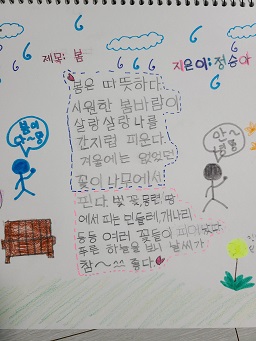 제목: 봄
지은이: 정승아
봄은 따뜻하다.
시원한 봄바람이
살랑살랑 나를
간지럼 피운다.
겨울에는 없었던
꽃이 나무에서
핀다 벚꽃, 목련 땅
에서 피는 민들레, 개나리
등등 여러 꽃들이 피어있다
푸른 하늘을 보니 날씨가
참~ 좋다.
봄이
안~